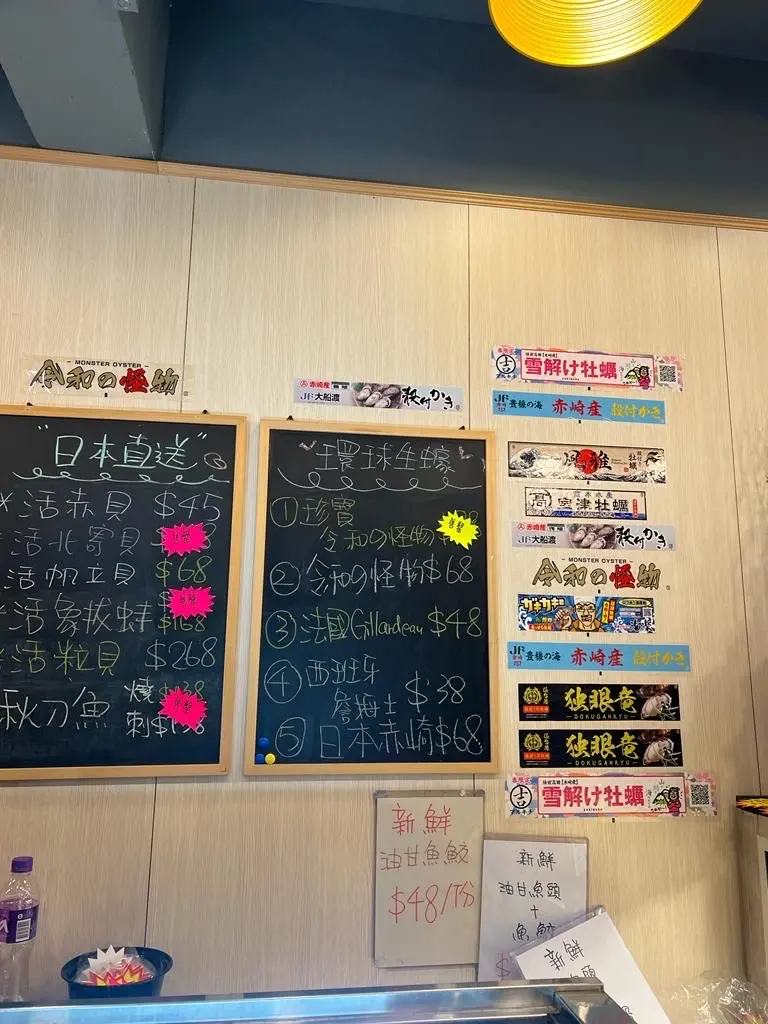 - MONSTER OYSTER -
令和の怪物
"日本直送"
活赤貝 $45
活北寄貝
售罄
活帆立貝 $68
活象拔蚌
售罄
活粒貝 $268
秋刀魚 燒
刺
售罄
赤崎産
JF大船渡
殻付かき
環球生蠔
① 珍寶
令和の怪物
售罄
② 令和の怪物 $68
③ 法國Gillardeau $48
④ 西班牙
詹姆士 $38
⑤ 日本赤崎 $68
雪解け牡蠣
JF 豊穣の海 赤崎産 殻付かき
風雅
牡蠣
室津牡蠣
JF大船渡
殻付かき
- MONSTER OYSTER -
令和の怪物
ガキガキ
JF 豊穣の海 赤崎産 殻付かき
独眼竜
DOKUGANRYU
独眼竜
DOKUGANRYU
吉 雪解け牡蠣
新鮮
油甘魚鮫
$48/1份
新鮮
油甘魚頭
+
魚鮫
$
新鮮